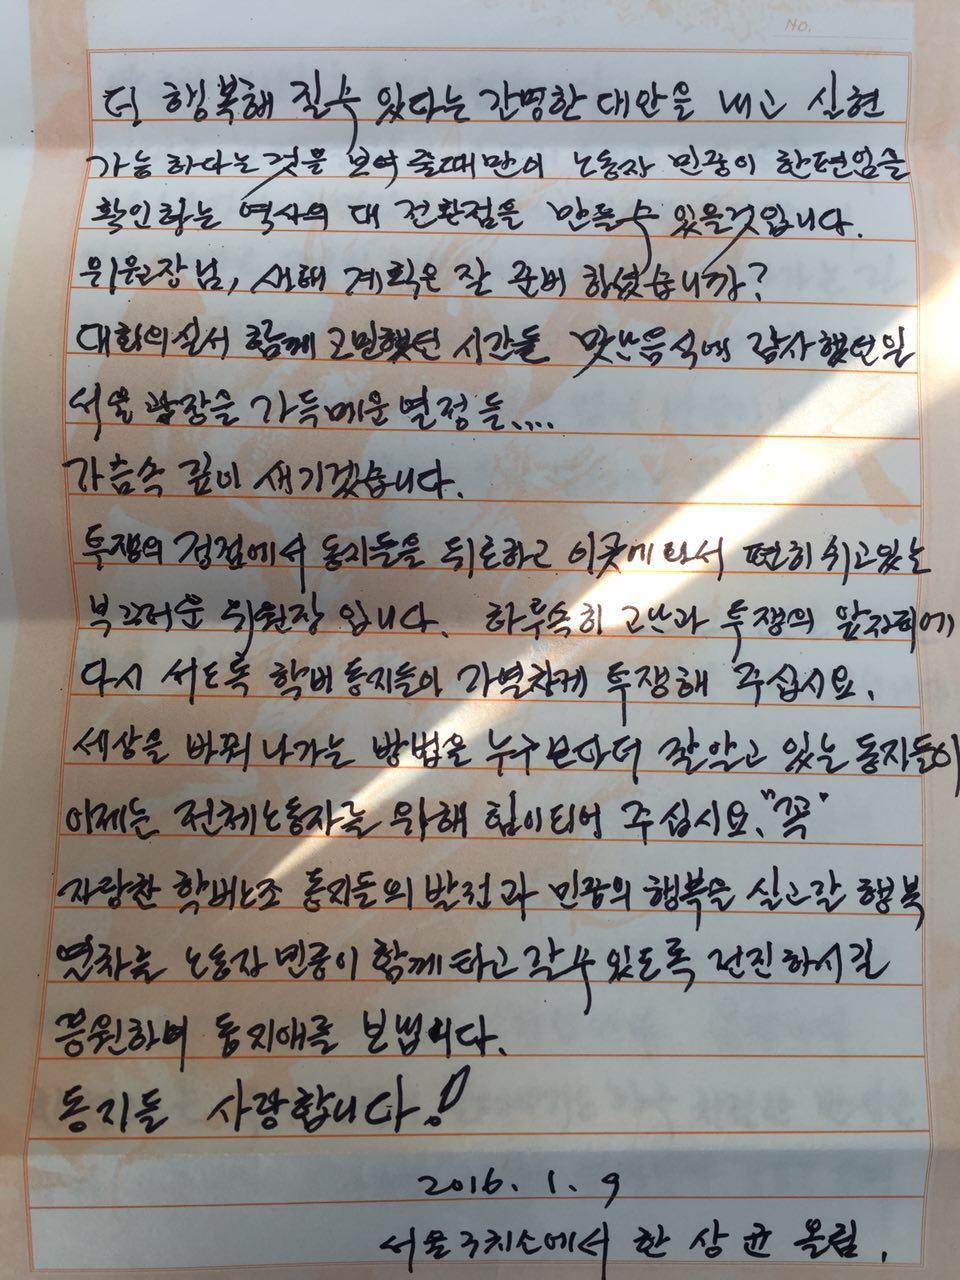 No.
더 행복해 질수 있다는 간명한 대안을 내고 실현
가능 하다는 것을 보여 줄때만이 노동자 민중이 한편임을
확인하는 역사의 대 전환점을 만들수 있을것입니다.
위원장님, 새해 계획은 잘 준비 하셨습니까?
대회의실서 함께 고민했던 시간들 맛난음식에 감사했던일
서울광장을 가득메운 열정들....
가슴속 깊이 새기겠습니다.
투쟁의 정점에서 동지들을 뒤로하고 이곳에와서 편히 쉬고있는
부끄러운 위원장 입니다. 하루속히 고난과 투쟁의 앞자리에
다시 서도록 학비동지들이 가열차게 투쟁해 주십시요.
세상을 바꿔 나가는 방법을 누구보다더 잘알고 있는 동지들이
이제는 전체노동자를 위해 힘이되어 주십시요. "꼭"
자랑찬 학비노조 동지들의 발전과 민중의 행복을 싣고갈 행복
열차를 노동자 민중이 함께타고 갈수 있도록 전진하시길
응원하며 동지애를 보냅니다.
동지들 사랑합니다!
2016. 1. 9
서울구치소에서 한 상 균 올림.